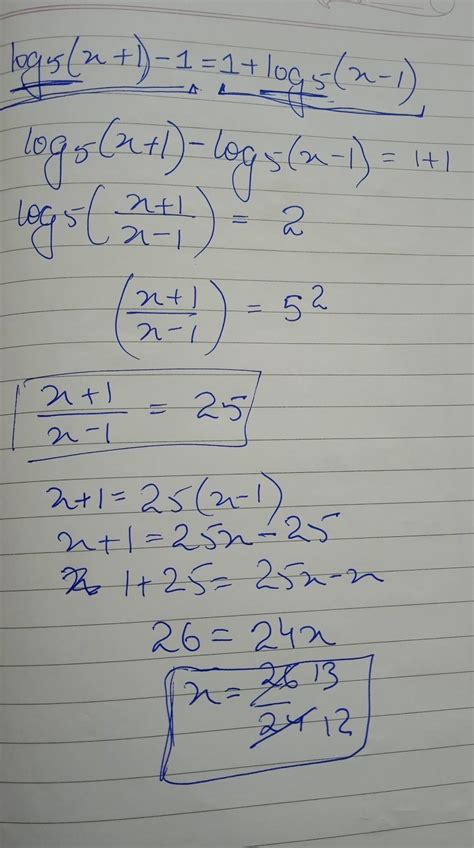 log₅(x+1)-1=1+log₅(x-1)
log₅(x+1)-log₅(x-1)=1+1
log₅((x+1)/(x-1)) = 2
((x+1)/(x-1)) = 5²
(x+1)/(x-1) = 25
x+1=25(x-1)
x+1=25x-25
1+25=25x-x
26=24x
x=26/24 13/12